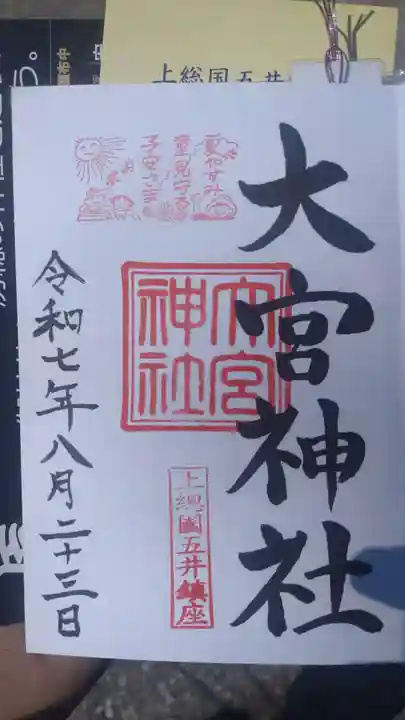 上総国五井
大宮神社
夏やすみ
童見守る
子守さま
大宮
神社
上總國五井鎮座
令和七年八月二十三日